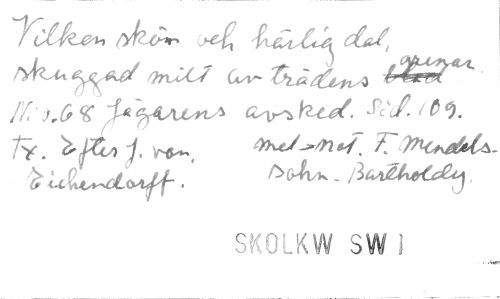 Vilken skön och härlig dal,
skuggad milt av trädens grenar
N:o. 68 Jägarens avsked. Sid. 109.
Tx. Efter J. von. mel. > not. F. Mendels-
Eichendorff. sohn-Bartholdy.
SKOLKW SW 1